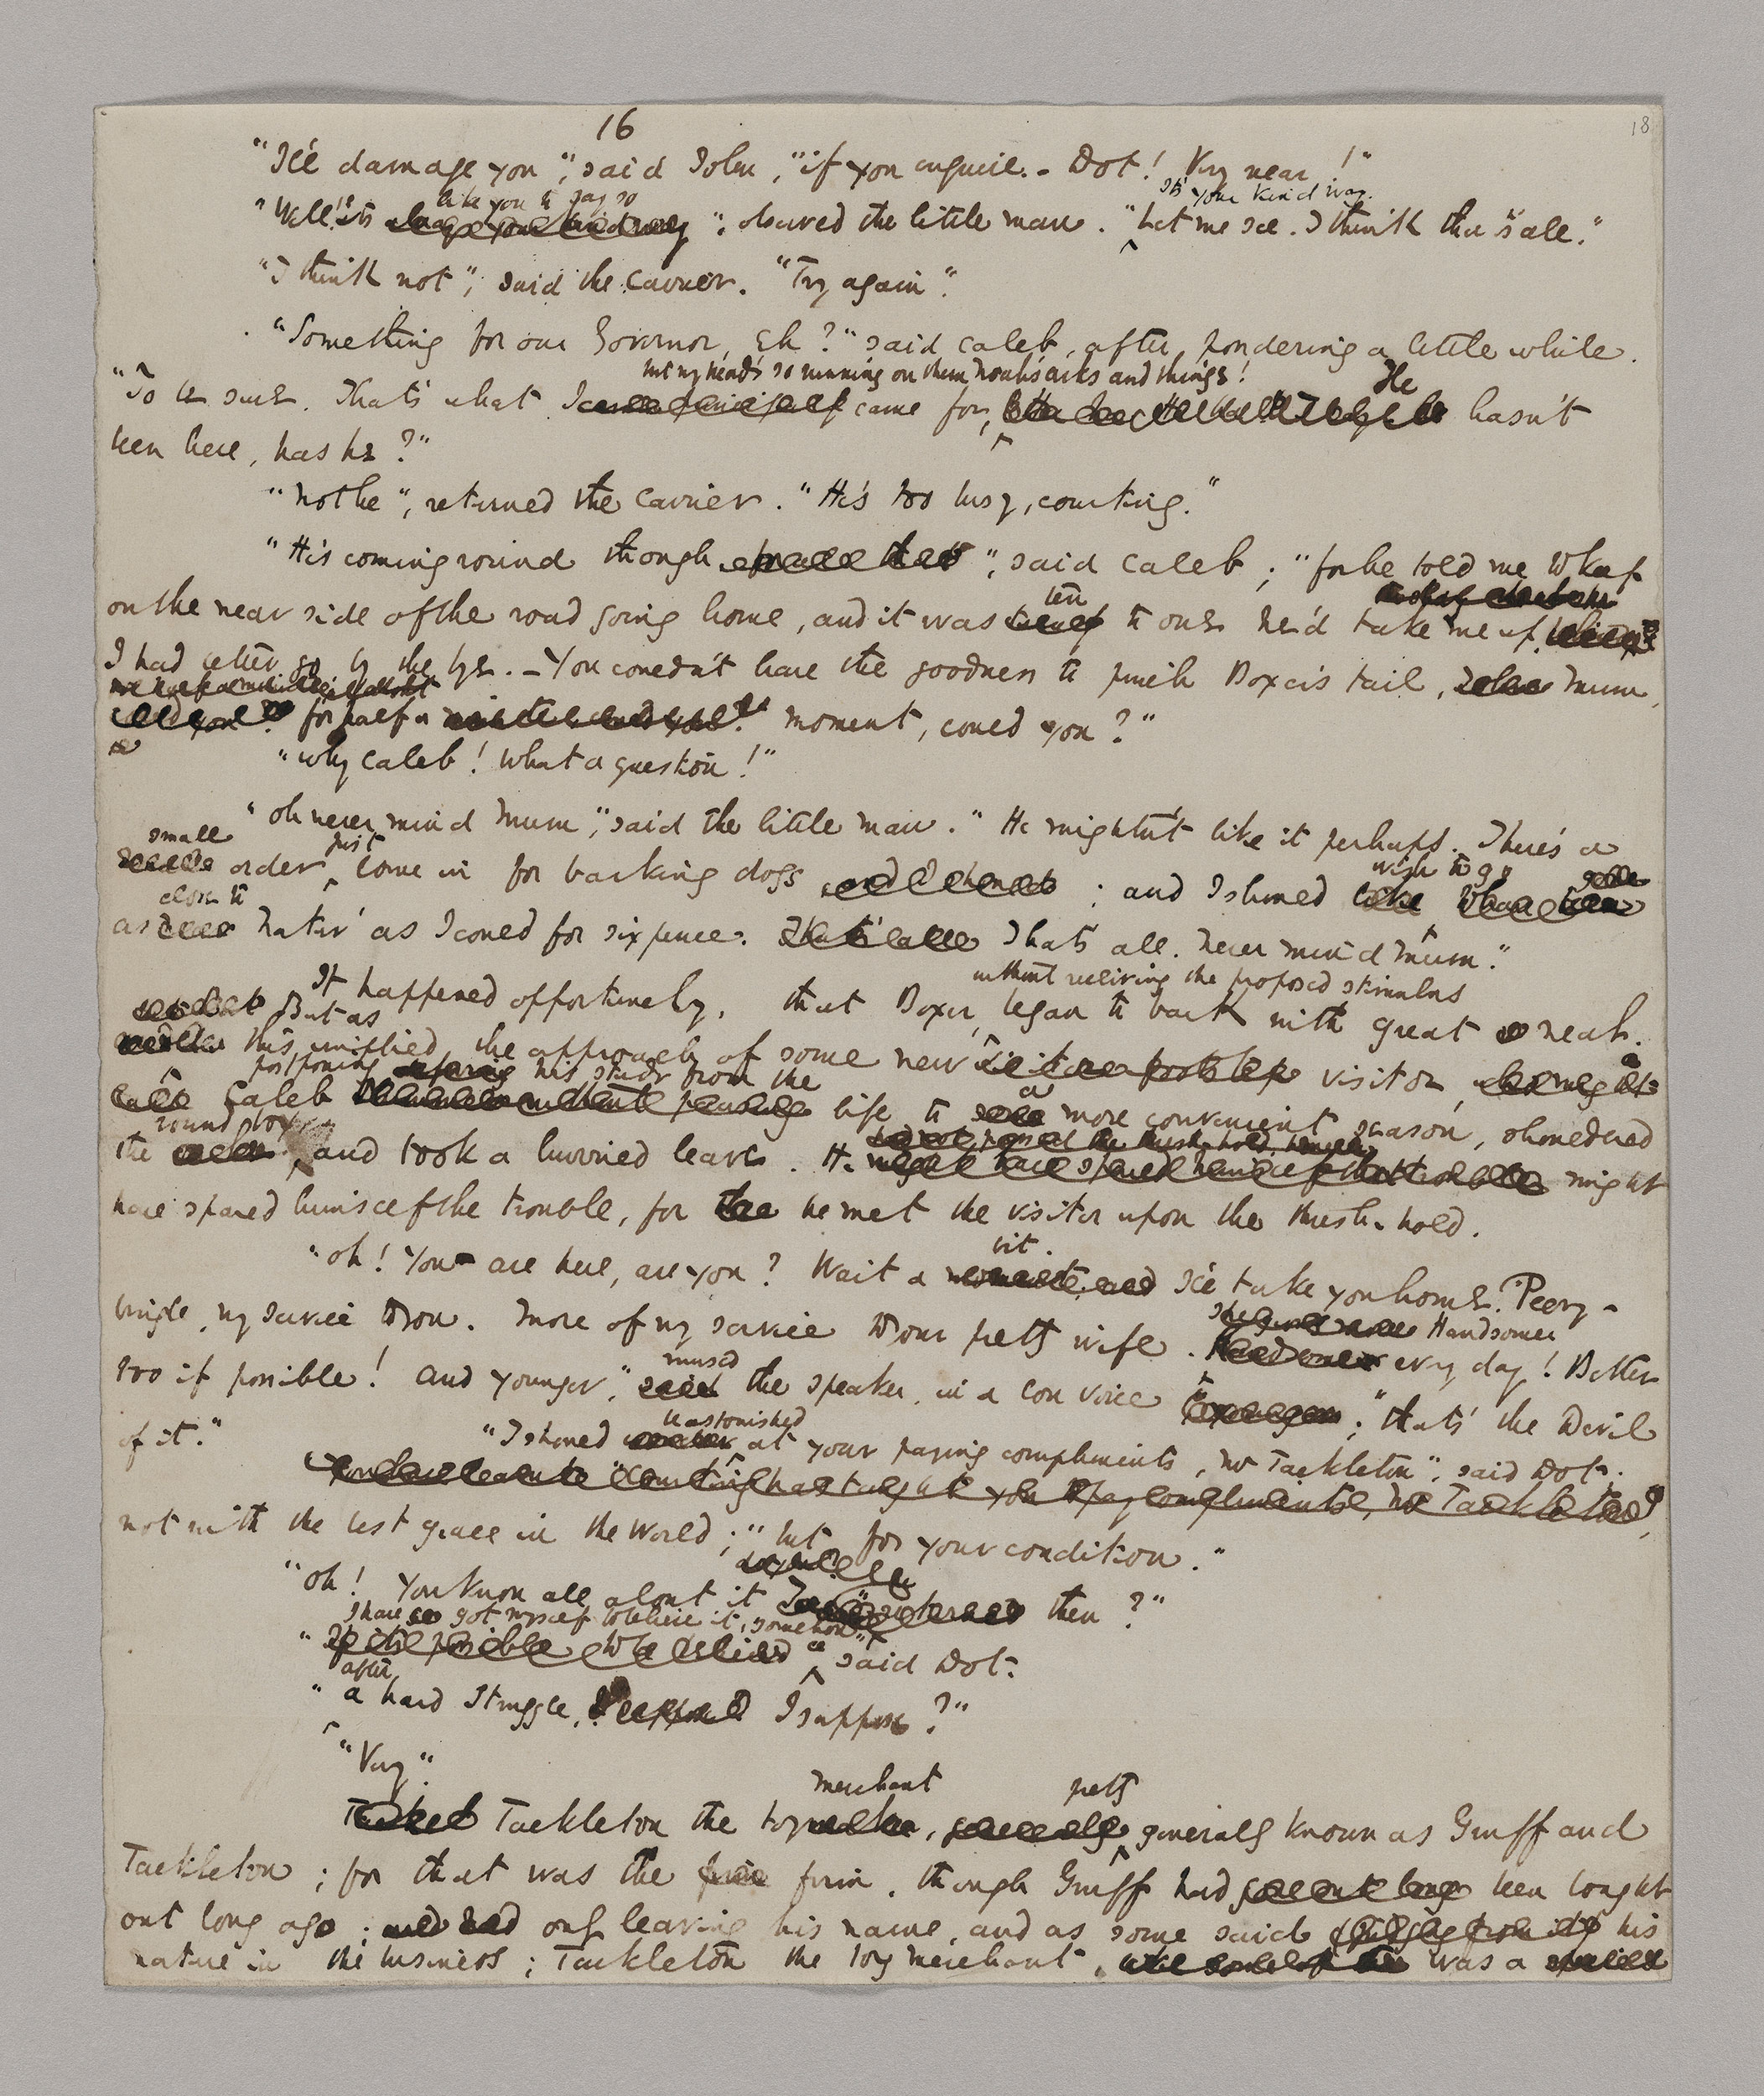 16
18
"I'll damage you," said John, "if you enquire. - Dot! Very near!"
like you to say so
It's your kind way.
"Well! it's always your kind way"; observed the little man. "Let me see. I think that's all."
"I think not", said the Carrier. "Try again".
"Something for our Governor, Eh?" said Caleb, after pondering a little while.
but my head's so running on them Noah's arks and things! He
"To be sure. That's what I came for; hasn't
been here, has he?"
"Not he", returned the Carrier. "He's too busy, courting."
"He's coming round though for all that", said Caleb; "for he told me to keep
ten
on the near side of the road going home, and it was to one he'd take me up.
I had better go, by the bye. - You couldn't have the goodness to pinch Boxer's tail, Mum,
for half a moment, could you?"
"Why Caleb! What a question!"
"Oh never mind Mum", said the little man. "He mightn't like it perhaps. There's a
small just wish to go
order come in for barking dogs ; and I should
close to
as natur' as I could for sixpence. That's all Thats all. Never mind Mum."
without receiving the proposed stimulus
It happened opportunely, that Boxer, began to bark with great zeal.
But as
this implied the approach of some new visitor,
postponing his study from the
Caleb life to a more convenient season, shouldered
round box
the and took a hurried leave. He might have spared himself the trouble might
have spared himself the trouble, for he met the visitor upon the thresh-hold.
bit.
"Oh! You are here, are you? Wait a I'll take you home. Peery-
Handsomer
bingle, my service to you. More of my service to your pretty wife. every day! Better
mused
too if possible! And younger," said the speaker, in a low voice ; "that's the Devil
of it."
be astonished
"I should at your paying compliments, Mr Tackleton", said Dot,
courting has taught you to pay compliments, Mr Tackleton"
not with the best grace in the world; "but for your condition."
"Oh! You know all about it then?"
I have got myself to believe it, somehow"
"If it's possible to believe said Dot.
after
"a hard struggle, I suppose?"
"Very".
merchant pretty
Tackleton the toy , generally generally known as Gruff and
Tackleton; for that was the firm, though Gruff had been bought
out long ago; and had only leaving his name, and as some said his
nature in the business; Tackleton the toy merchant, was a